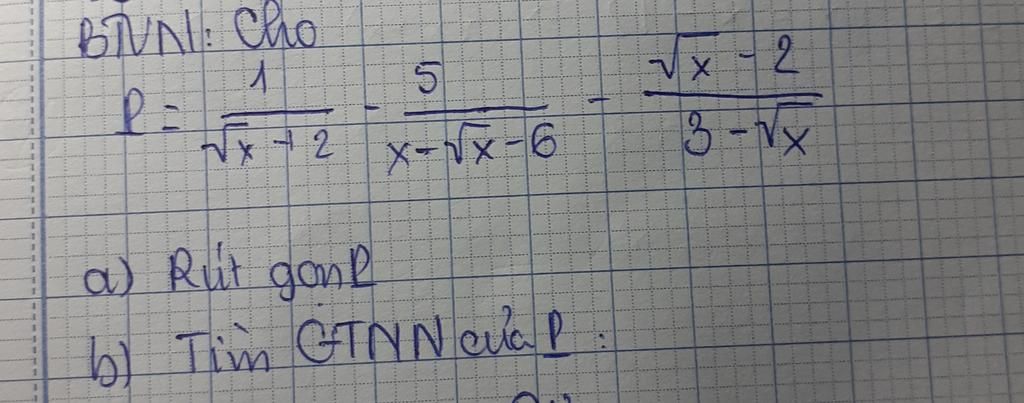 BTVN1: Cho
P = 1/(√x + 2) - 5/(x - √x - 6) - (√x - 2)/(3 - √x)
a) Rút gọn P
b) Tìm GTNN của P :